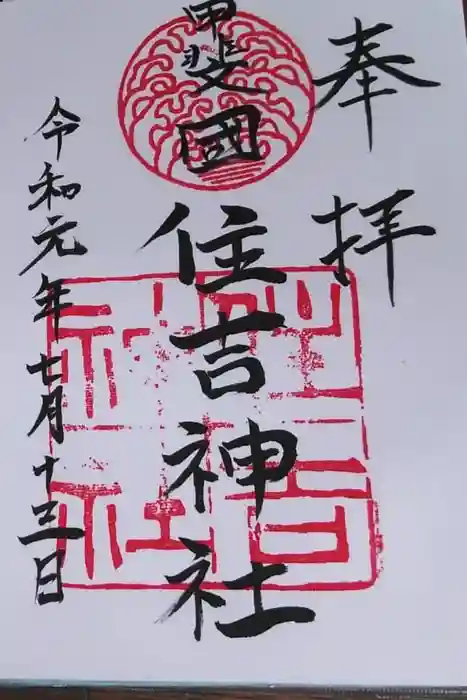 奉拝
甲斐國
住吉神社
令和元年七月十三日
住吉
神社